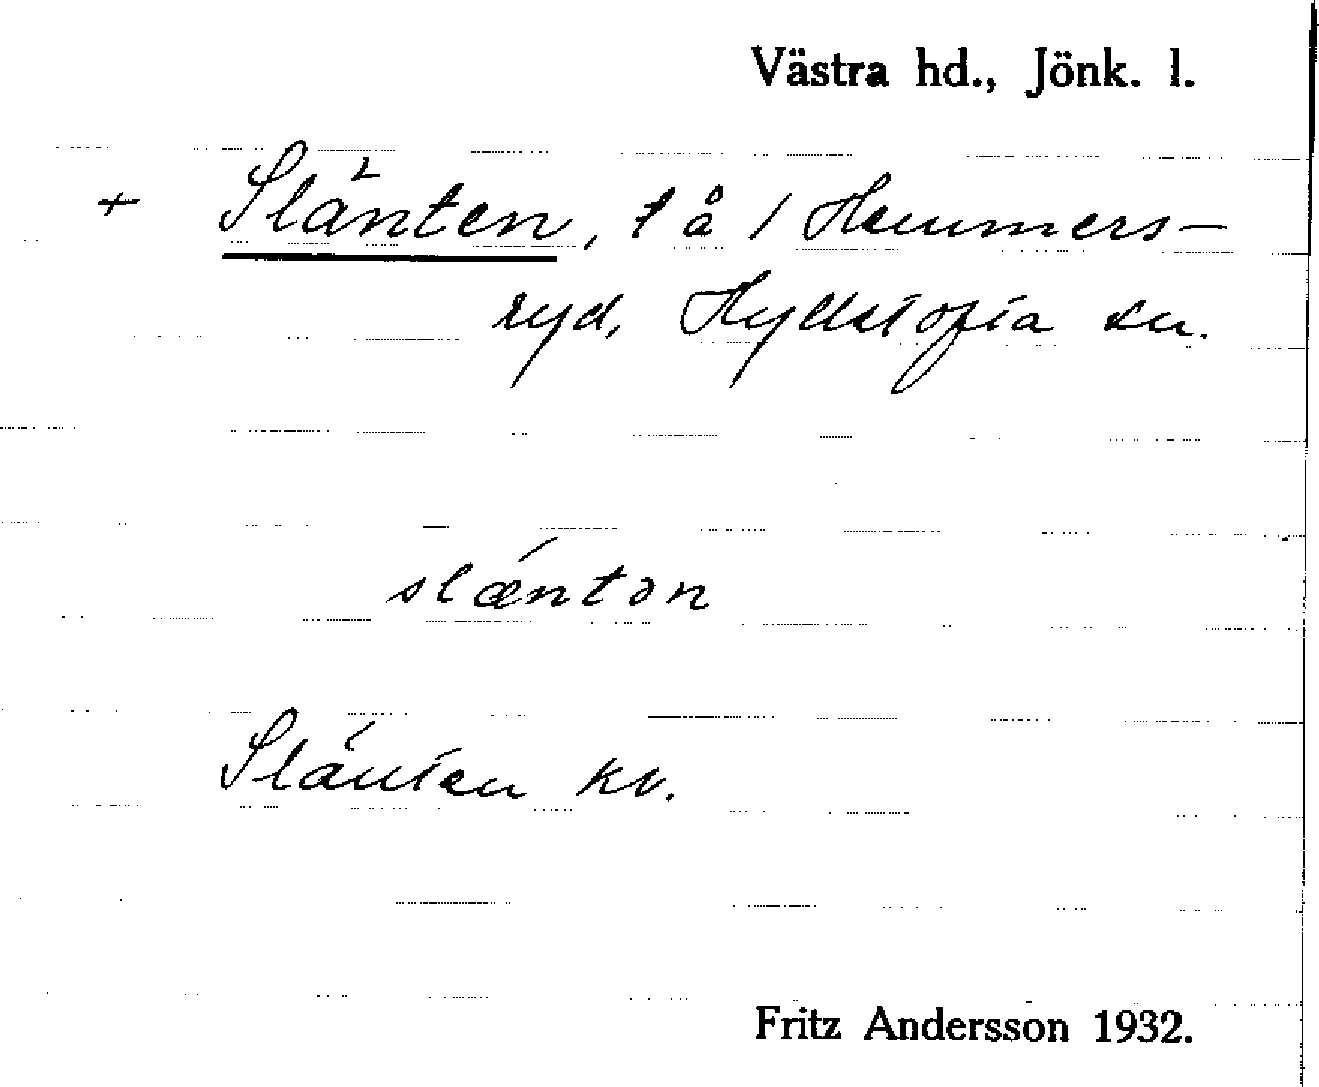 Västra hd., Jönk. l.
+ Slänten, t å / Hemmers-
ryd, Hyllstofta sn.
slǽntən
Slänten kv.
Fritz Andersson 1932.